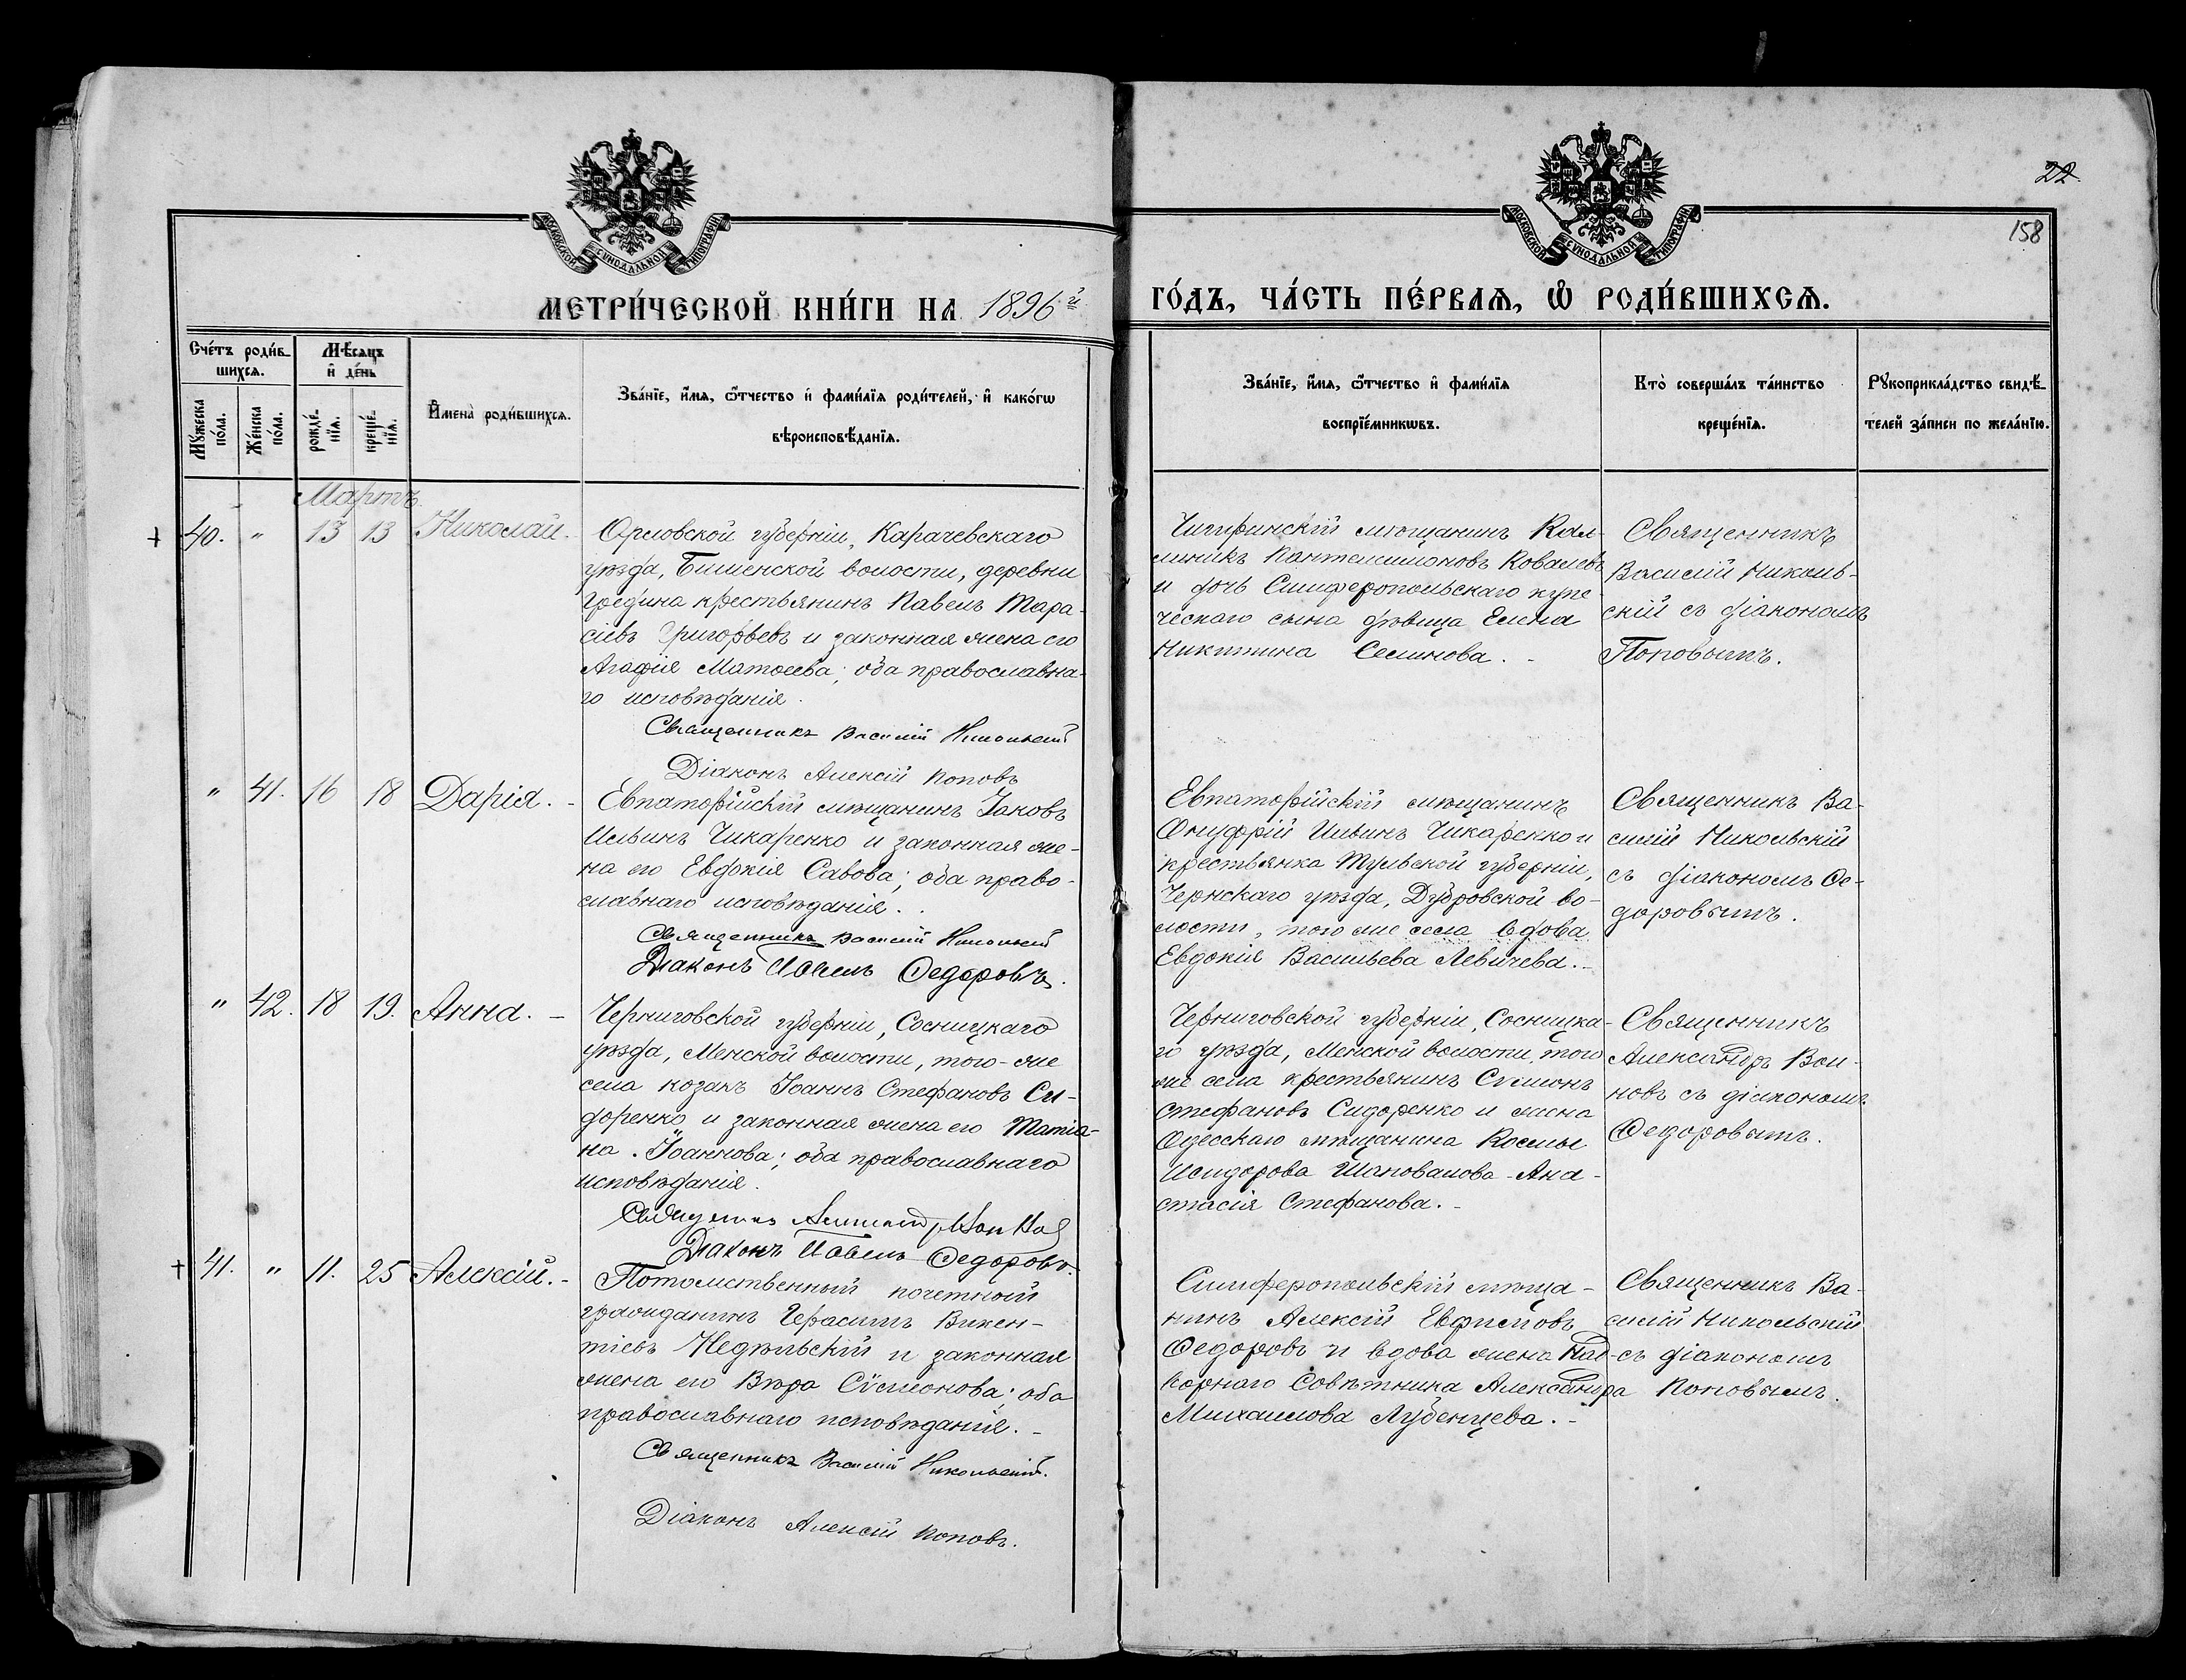 22.
158
МОСКОВСКОЙ СѴНОДАЛЬНОЙ ТИПОГРАФІИ
МОСКОВСКОЙ СѴНОДАЛЬНОЙ ТИПОГРАФІИ
МЕТРИ́ЧЕСКОЙ КНИ́ГИ НА 1896й ГО́ДЪ, ЧА́СТЬ ПЕ́РВАѦ, Ѽ РОДИ́ВШИХСѦ.
Сче́тъ роди́в-
шихсѧ.
Мѣ́сѧцъ
и҆ де́нь
Мꙋ́жеска
по́ла.
Же́нска
по́ла.
рожде́-
нїѧ.
креще́-
нїѧ.
И҆мена̀ роди́вшихсѧ.
Зва́нїе, и҆́мѧ, ѻ҆́тчество и҆ фами́лїѧ роди́телей, и҆ како́гѡ
вѣроисповѣ́данїѧ.
Зва́нїе, и҆́мѧ, ѻ҆́тчество и҆ фами́лїѧ
воспрїе́мникѡвъ.
Кто̀ соверша́лъ та́инство
креще́нїѧ.
Рꙋкоприкла́дство свидѣ́-
телей за́писи по жела́нїю.
Мартъ
40. " 13 13 Николай.
Орловской губерніи, Карачевскаго
уѣзда, волости, деревни
Гредина крестьянинъ Павелъ Тара-
сіевъ Григорьевъ и законная жена его
Агафія Матѳеева; оба православна-
го исповѣданія.
Священникъ Василій Никольскій
Діаконъ Алексій Поповъ
Чигиринскій мѣщанинъ Кал-
линикъ Пантелимоновъ Ковалевъ
и дочь Симферопольскаго купе-
ческаго сына дѣвица Елена
Никитина Селинова. -
Священникъ
Василій Николь-
скій съ діакономъ
Поповымъ.
" 41. 16 18 Дарія. -
Евпаторійскій мѣщанинъ Іаковъ
Ильинъ Чикаренко и законная же-
на его Евдокія Савова; оба право-
славнаго исповѣданія.
Священникъ Василій Никольскій
Діаконъ Павелъ Ѳедоровъ.
Евпаторійскій мѣщанинъ
Онуфрій Ильинъ Чикаренко и
крестьянка Тульской губерніи,
Чернскаго уѣзда, Дубровской во-
лости, того же села вдова
Евдокія Васильева Левичева. -
Священникъ Ва-
силій Никольскій
съ діакономъ Ѳе-
доровымъ.
" 42. 18 19. Анна. -
Черниговской губерніи, Сосницкаго
уѣзда, Менской волости, того-же
села козакъ Іоаннъ Стефановъ Си-
доренко и законная жена его Татіа-
на Іоаннова; оба православнаго
исповѣданія.
Священникъ
Діаконъ Павелъ Ѳедоровъ.
Черниговской губерніи, Сосницка-
го уѣзда, Менской волости, того
же села крестьянинъ Сѵмеонъ
Стефановъ Сидоренко и жена
Одесскаго мѣщанина Космы
Исидорова Шаповалова - Ана-
стасія Стефанова. -
Священникъ
Александръ Вои-
новъ съ діакономъ
Ѳедоровымъ.
41. " 11. 25 Алексій. -
Потомственный почетный
гражданинъ Герасимъ Викен-
тіевъ Недѣльскій и законная
жена его Вѣра Сѵмеонова; оба
православнаго исповѣданія. -
Священникъ Василій Никольскій.
Діаконъ Алексій Поповъ.
Симферопольскій мѣща-
нинъ Алексій Евфиміовъ
Ѳедоровъ и вдова жена Над-
ворнаго Совѣтника Александра
Михаилова Лубенцева. -
Священникъ Ва-
силій Никольскій
съ діакономъ
Поповымъ.